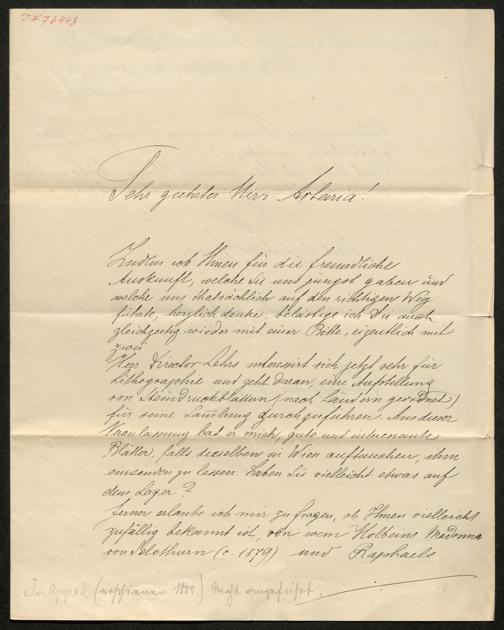 I.N. 76448
Sehr geehrter Herr Artaria!
Indem ich Ihnen für die freundliche
Auskunft, welche Sie uns jüngst gaben und
welche uns thatsächlich auf den richtigen Weg
führte, herzlich danke, belästige ich Sie auch
gleichzeitig wieder mit einer Bitte, eigentlich mit
zwei.
Herr Director Lehrs interessirt sich jetzt sehr für
Lithographie und geht daran, eine Aufstellung
von Steindruckblättern (nach Ländern geordnet)
für seine Samlung durchzuführen. Aus dieser
Veranlassung bat er mich, gute und interessante
Blätter, falls dieselben in Wien auftauchen, ihm
einsenden zu lassen. Haben Sie vielleicht etwas auf
dem Lager?
Ferner erlaube ich mir zu fragen, ob Ihnen vielleicht
zufällig bekannt ist, von wem Holbeins Madonna
von Solothurn (c. 1879) und Raphaels
In Appel (erschienen 1880) nicht angeführt.